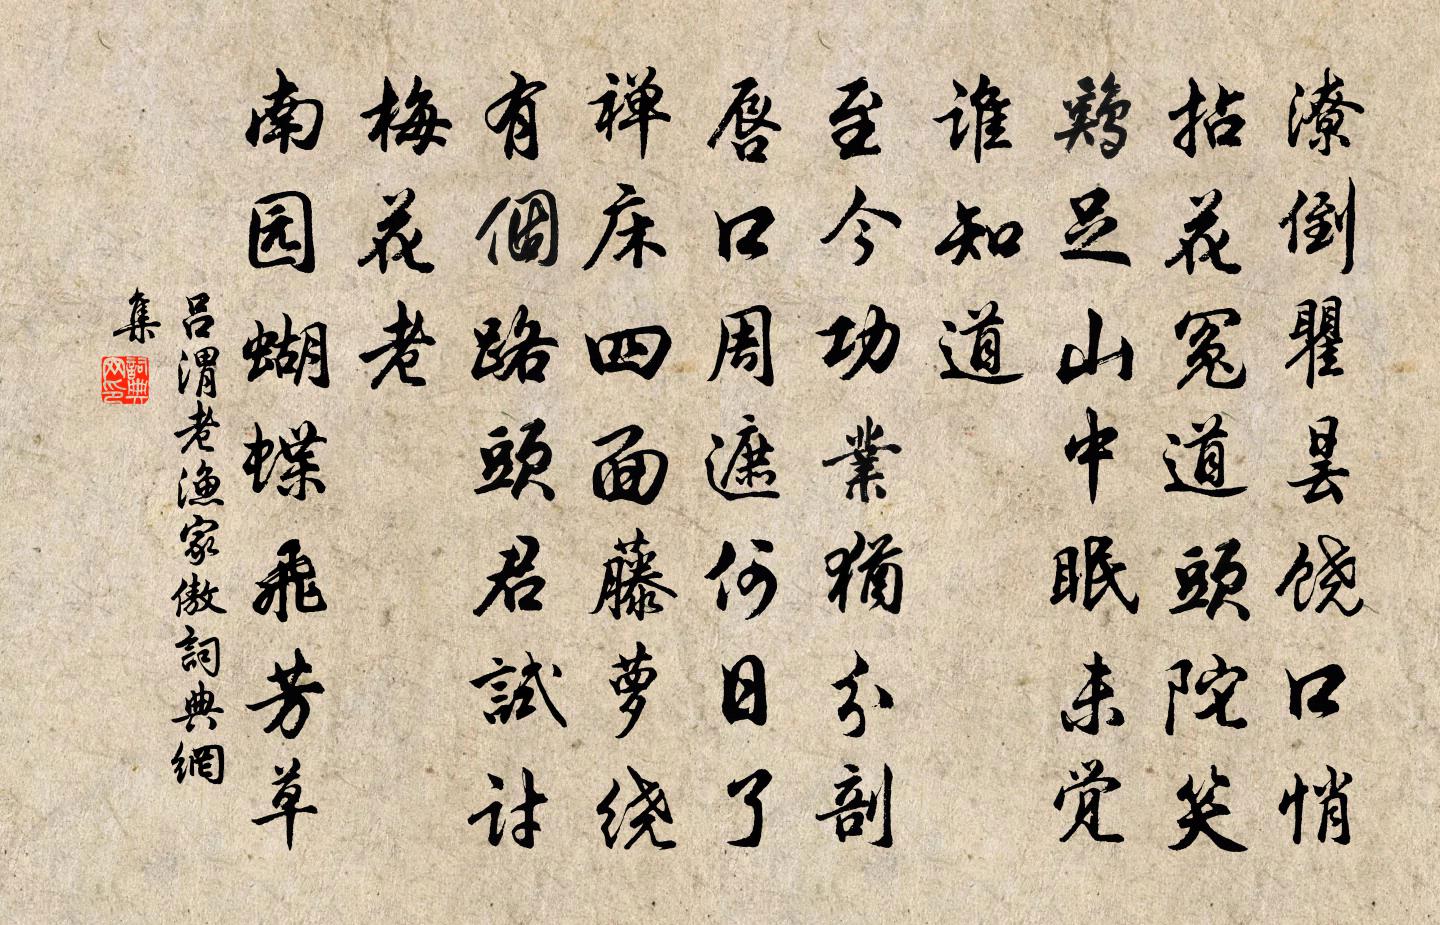 潦倒瞿昙饶口悄
拈花冤道頭陀笑
鷄足山中眠未觉
谁知道
至今功業猶分剖
唇口周遮何日了
禅床四面藤萝绕
有個路頭君試討
梅花老
南园蝴蝶飛芳草
吕渭老渔家傲詞典網
集
詞典
网印